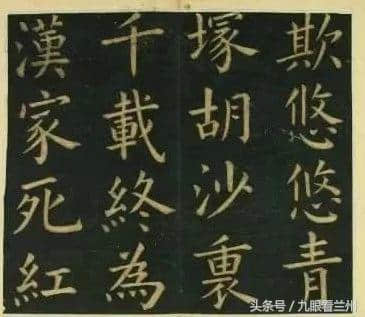 欺悠悠青
塚胡沙裏
千載終為
漢家死紅
头条号／九眼看兰州